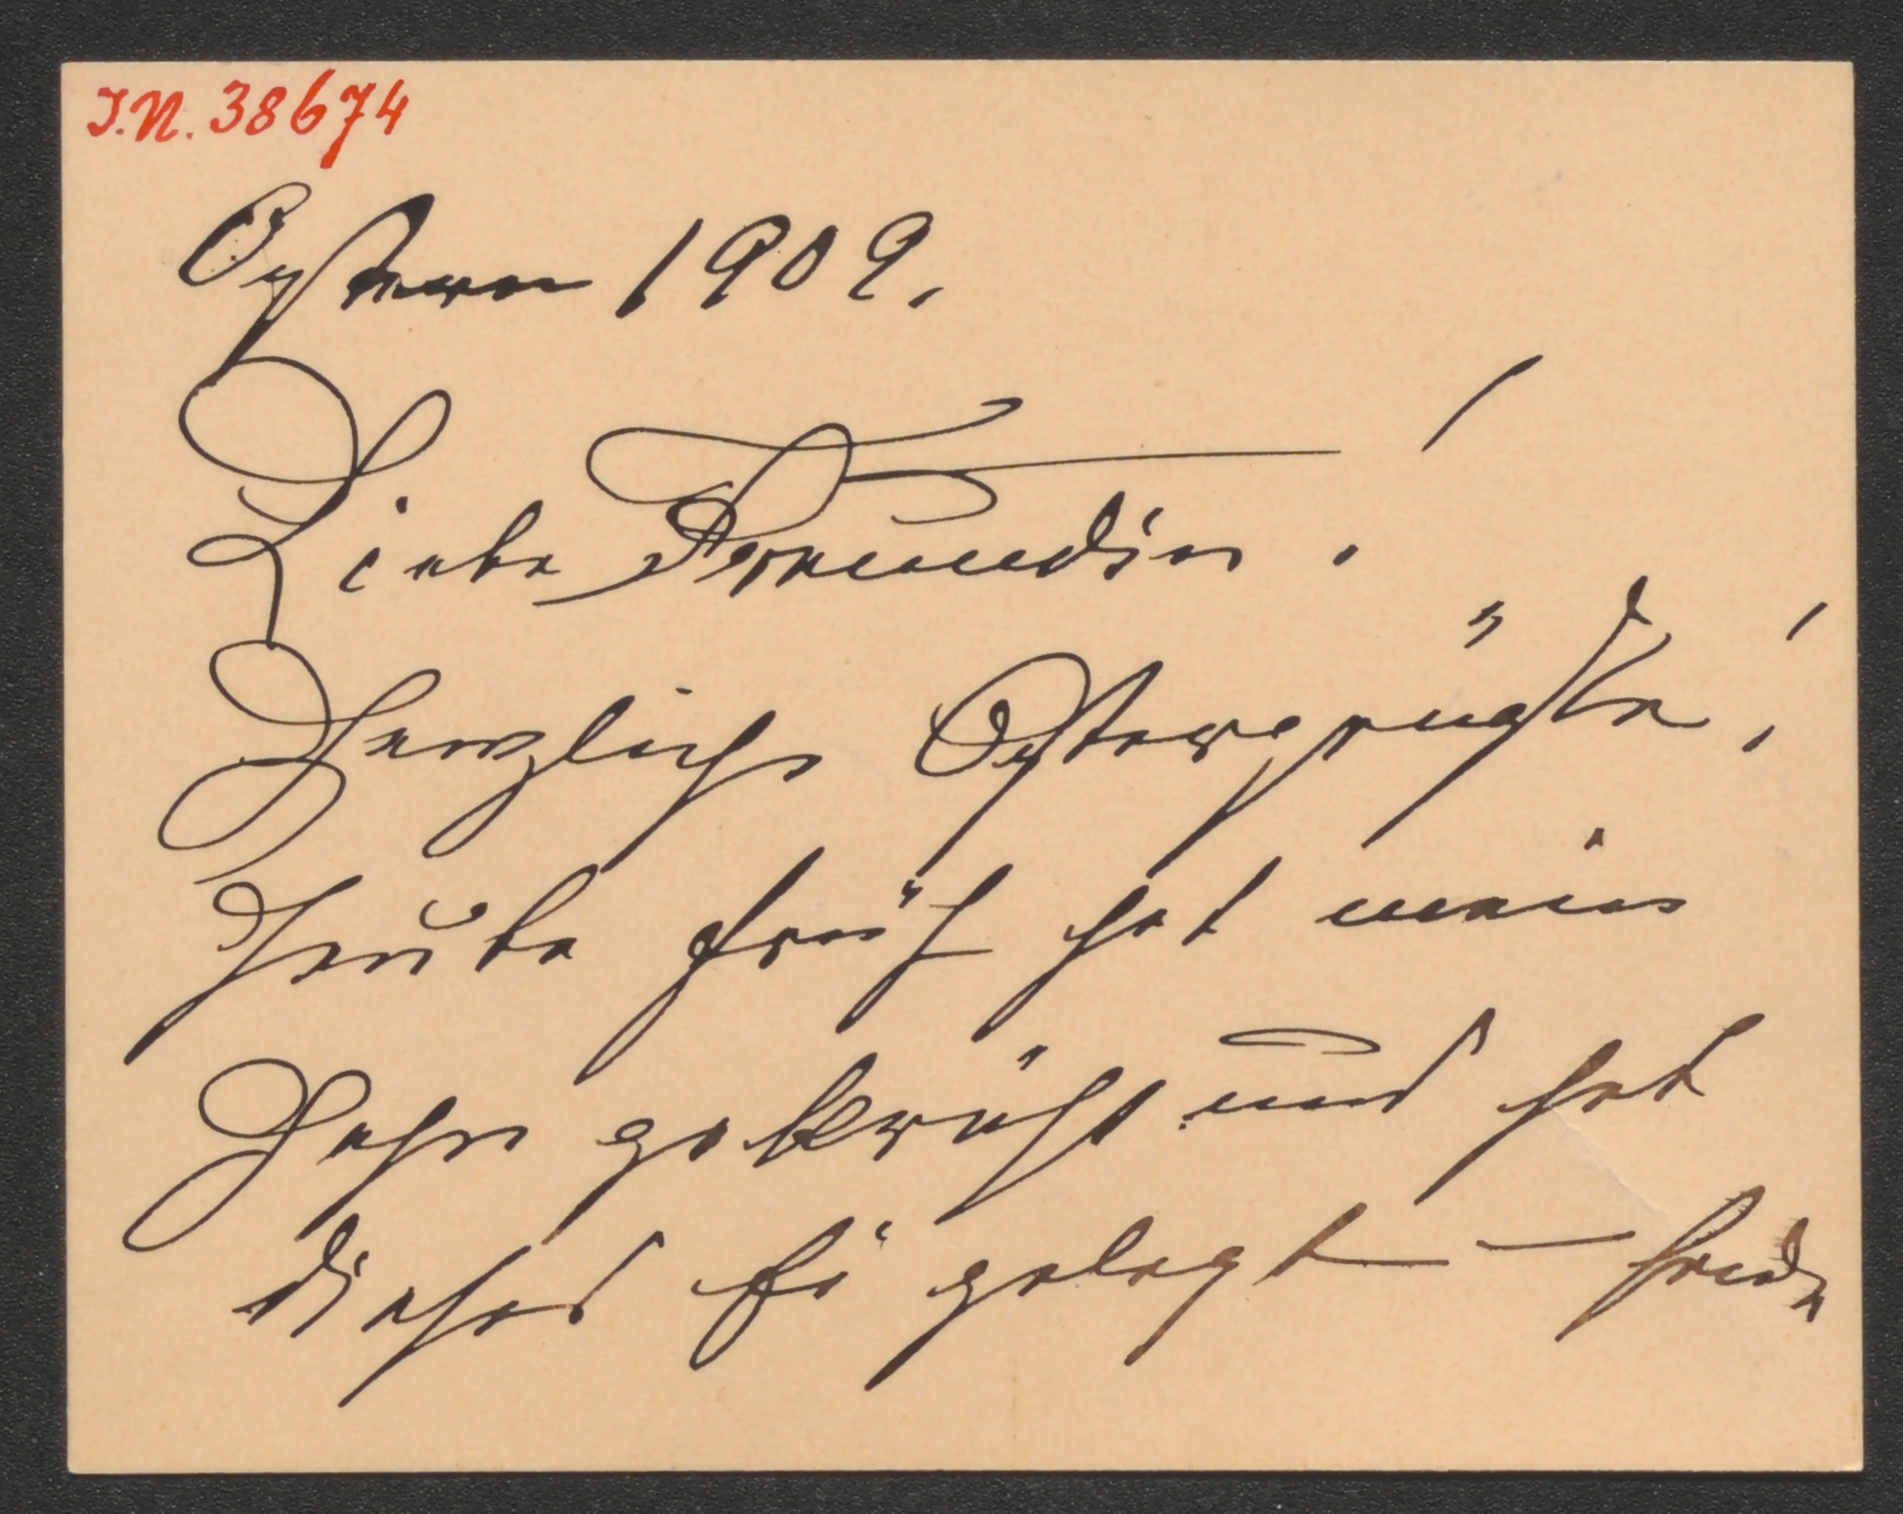 J.N. 38674
Ostern 1909.
Liebe Freundin!
Herzliche Ostergrüße!
Heute früh hat mein
Hahn gekräht und hat
dieses Ei gelegt —